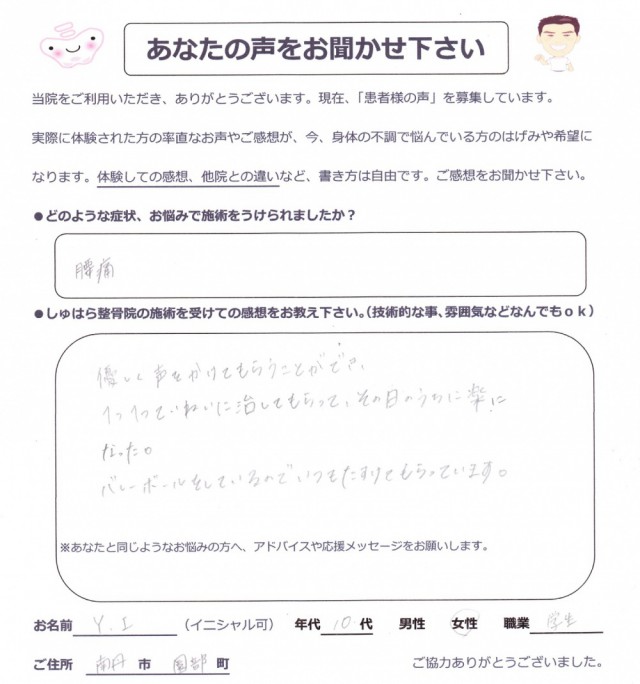 あなたの声をお聞かせ下さい
当院をご利用いただき、ありがとうございます。現在、「患者様の声」を募集しています。
実際に体験された方の率直なお声やご感想が、今、身体の不調で悩んでいる方のはげみや希望に
なります。体験しての感想、他院との違いなど、書き方は自由です。ご感想をお聞かせ下さい。
●どのような症状、お悩みで施術をうけられましたか？
腰痛
●しゅはら整骨院の施術を受けての感想をお教え下さい。（技術的な事、雰囲気などなんでもｏｋ）
優しく声をかけてもらうことができ、
1つ1つていねいに治してもらって、その日のうちに楽に
なった。
バレーボールをしているのでいつもたすけてもらっています。
※あなたと同じようなお悩みの方へ、アドバイスや応援メッセージをお願いします。
お名前 Y.I （イニシャル可） 年代 10 代 男性 女性 職業 学生
ご住所 南丹 市 園部 町 ご協力ありがとうございました。